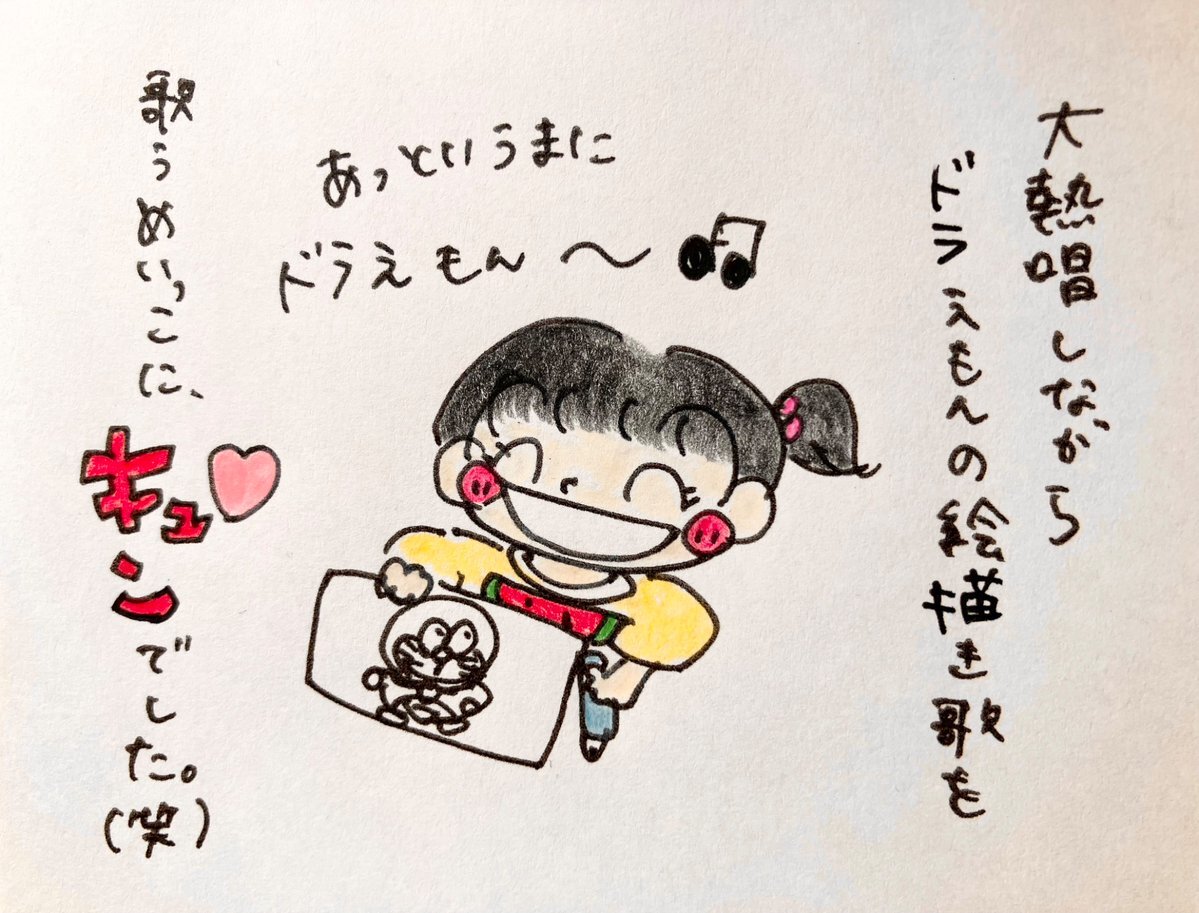 大熱唱しながら
ドラえもんの絵描き歌を
あっというまに
ドラえもん〜♫
歌うめいっこに、
キュン♡でした。(笑)